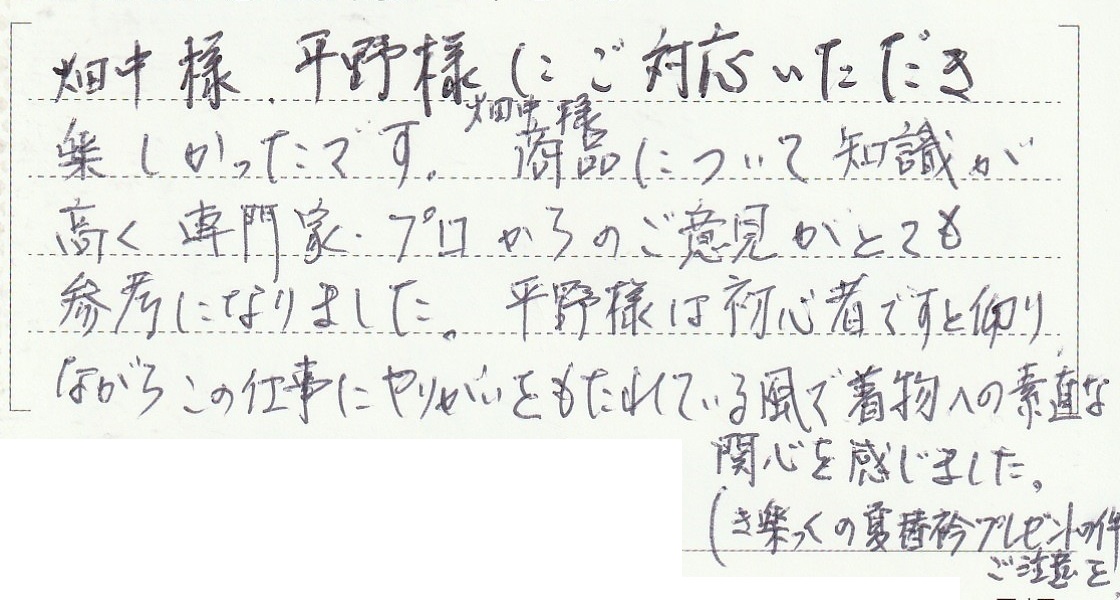 畑中様、平野様にご対応いただき
楽しかったです。畑中様 商品について知識が
高く専門家・プロからのご意見がとても
参考になりました。平野様は初心者ですと仰り
ながらこの仕事にやりがいをもたれている風で着物への素直な
関心を感じました。
(き楽っくの夏替衿プレゼントの件
ご注意を